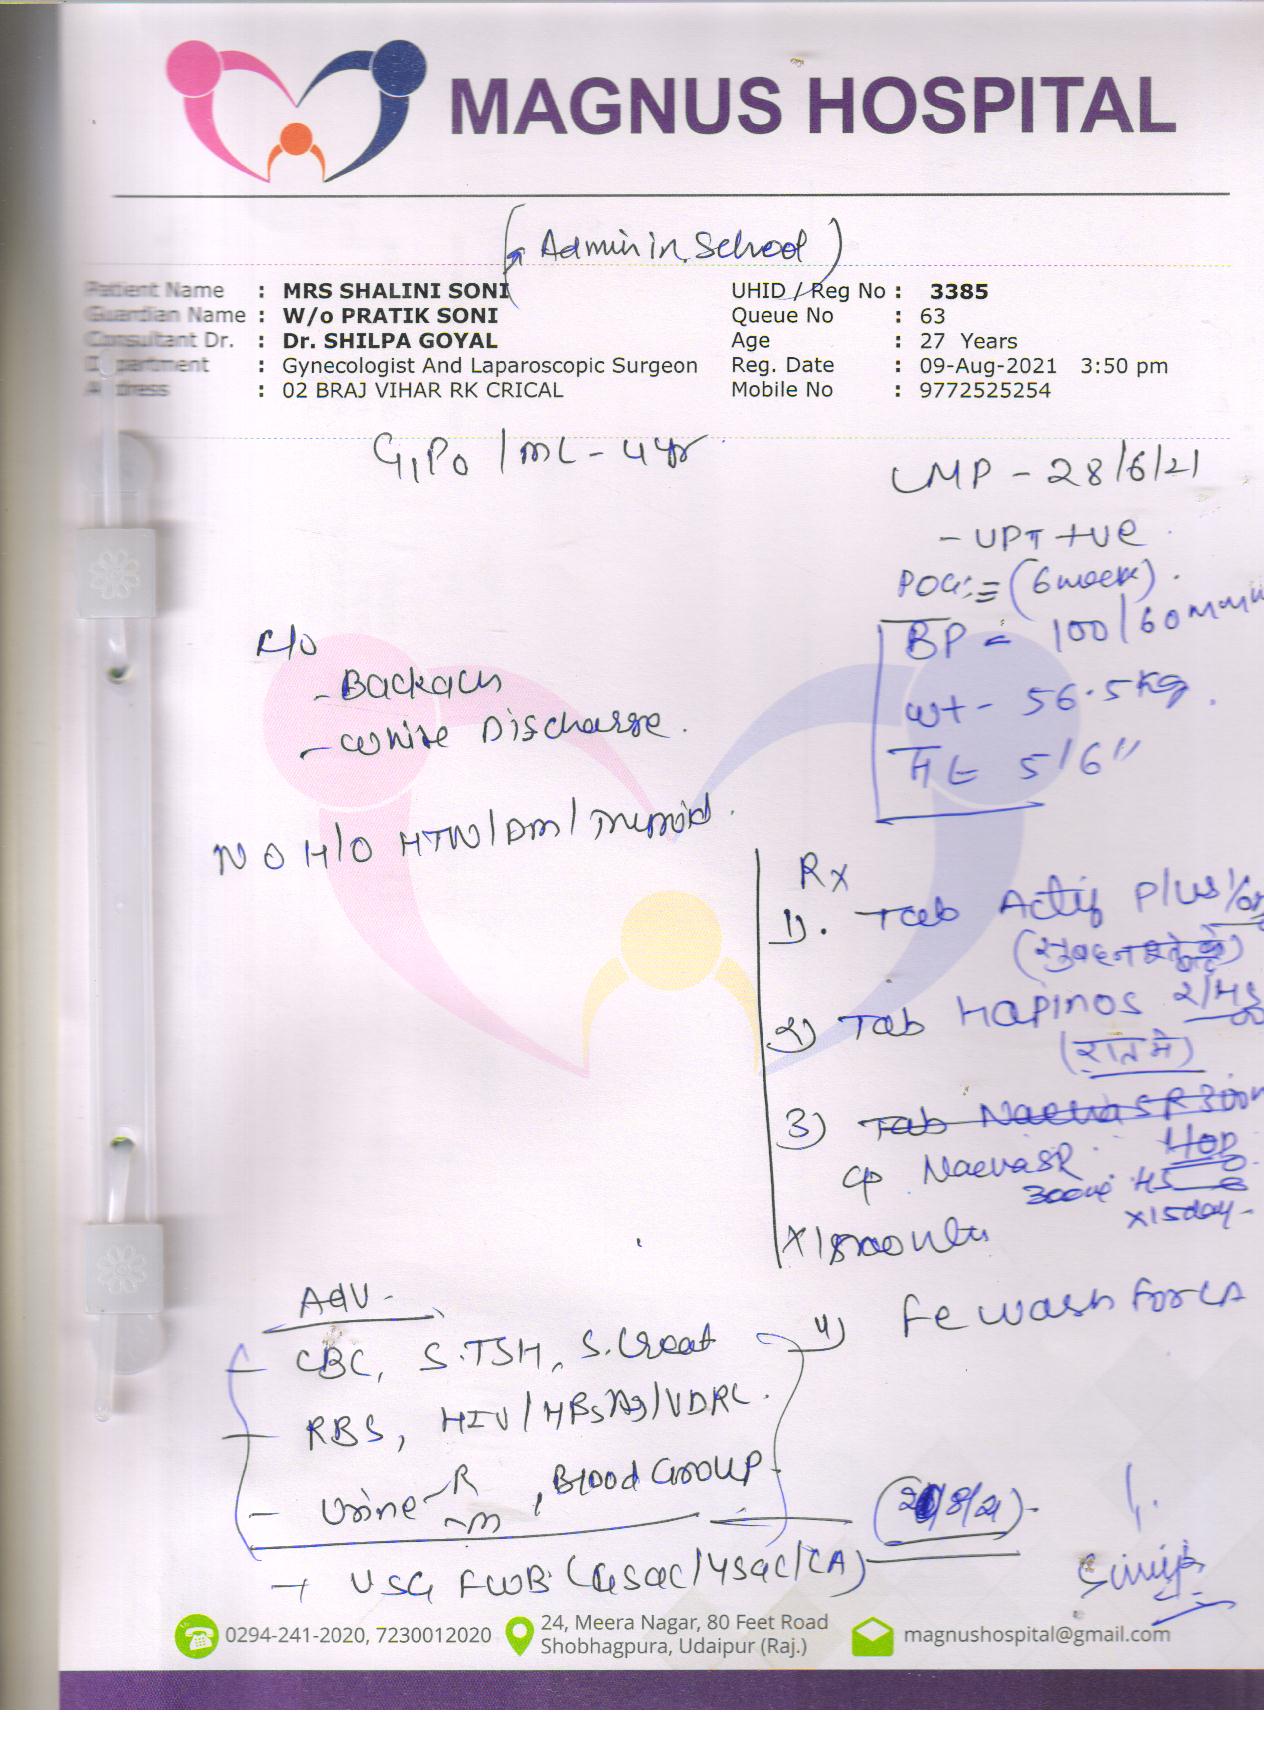 MAGNUS HOSPITAL
(Admin in School)
Patient Name : MRS SHALINI SONI
Guardian Name : W/o PRATIK SONI
Consultant Dr. : Dr. SHILPA GOYAL
Department : Gynecologist And Laparoscopic Surgeon
Address : 02 BRAJ VIHAR RK CRICAL
UHID / Reg No : 3385
Queue No : 63
Age : 27 Years
Reg. Date : 09-Aug-2021 3:50 pm
Mobile No : 9772525254
G1P0 / ML - 4yr
LMP - 28/6/21
- UPT +ve
POG = (6 week).
BP = 100/60 mmH
wt - 56.5 kg.
Ht 5'6"
- Backach
- White Discharge.
NO H/O HTN/DM/Thyroid.
Rx
1). Tab Actif Plus
2) Tab Hapinos 2/HS
(रात में)
3) Tab Naeva SR 300
cp Naeva SR HS
x 15 day -
4) Fe wash for LA
Adv -
- CBC, S.TSH, S.Creat
- RBS, HIV/HBsAg/VDRL.
- Urine R, Blood Group
m
(8/21) -
→ USG FWB (Gsac/Ysac/CA)
0294-241-2020, 7230012020
24, Meera Nagar, 80 Feet Road
Shobhagpura, Udaipur (Raj.)
magnushospital@gmail.com